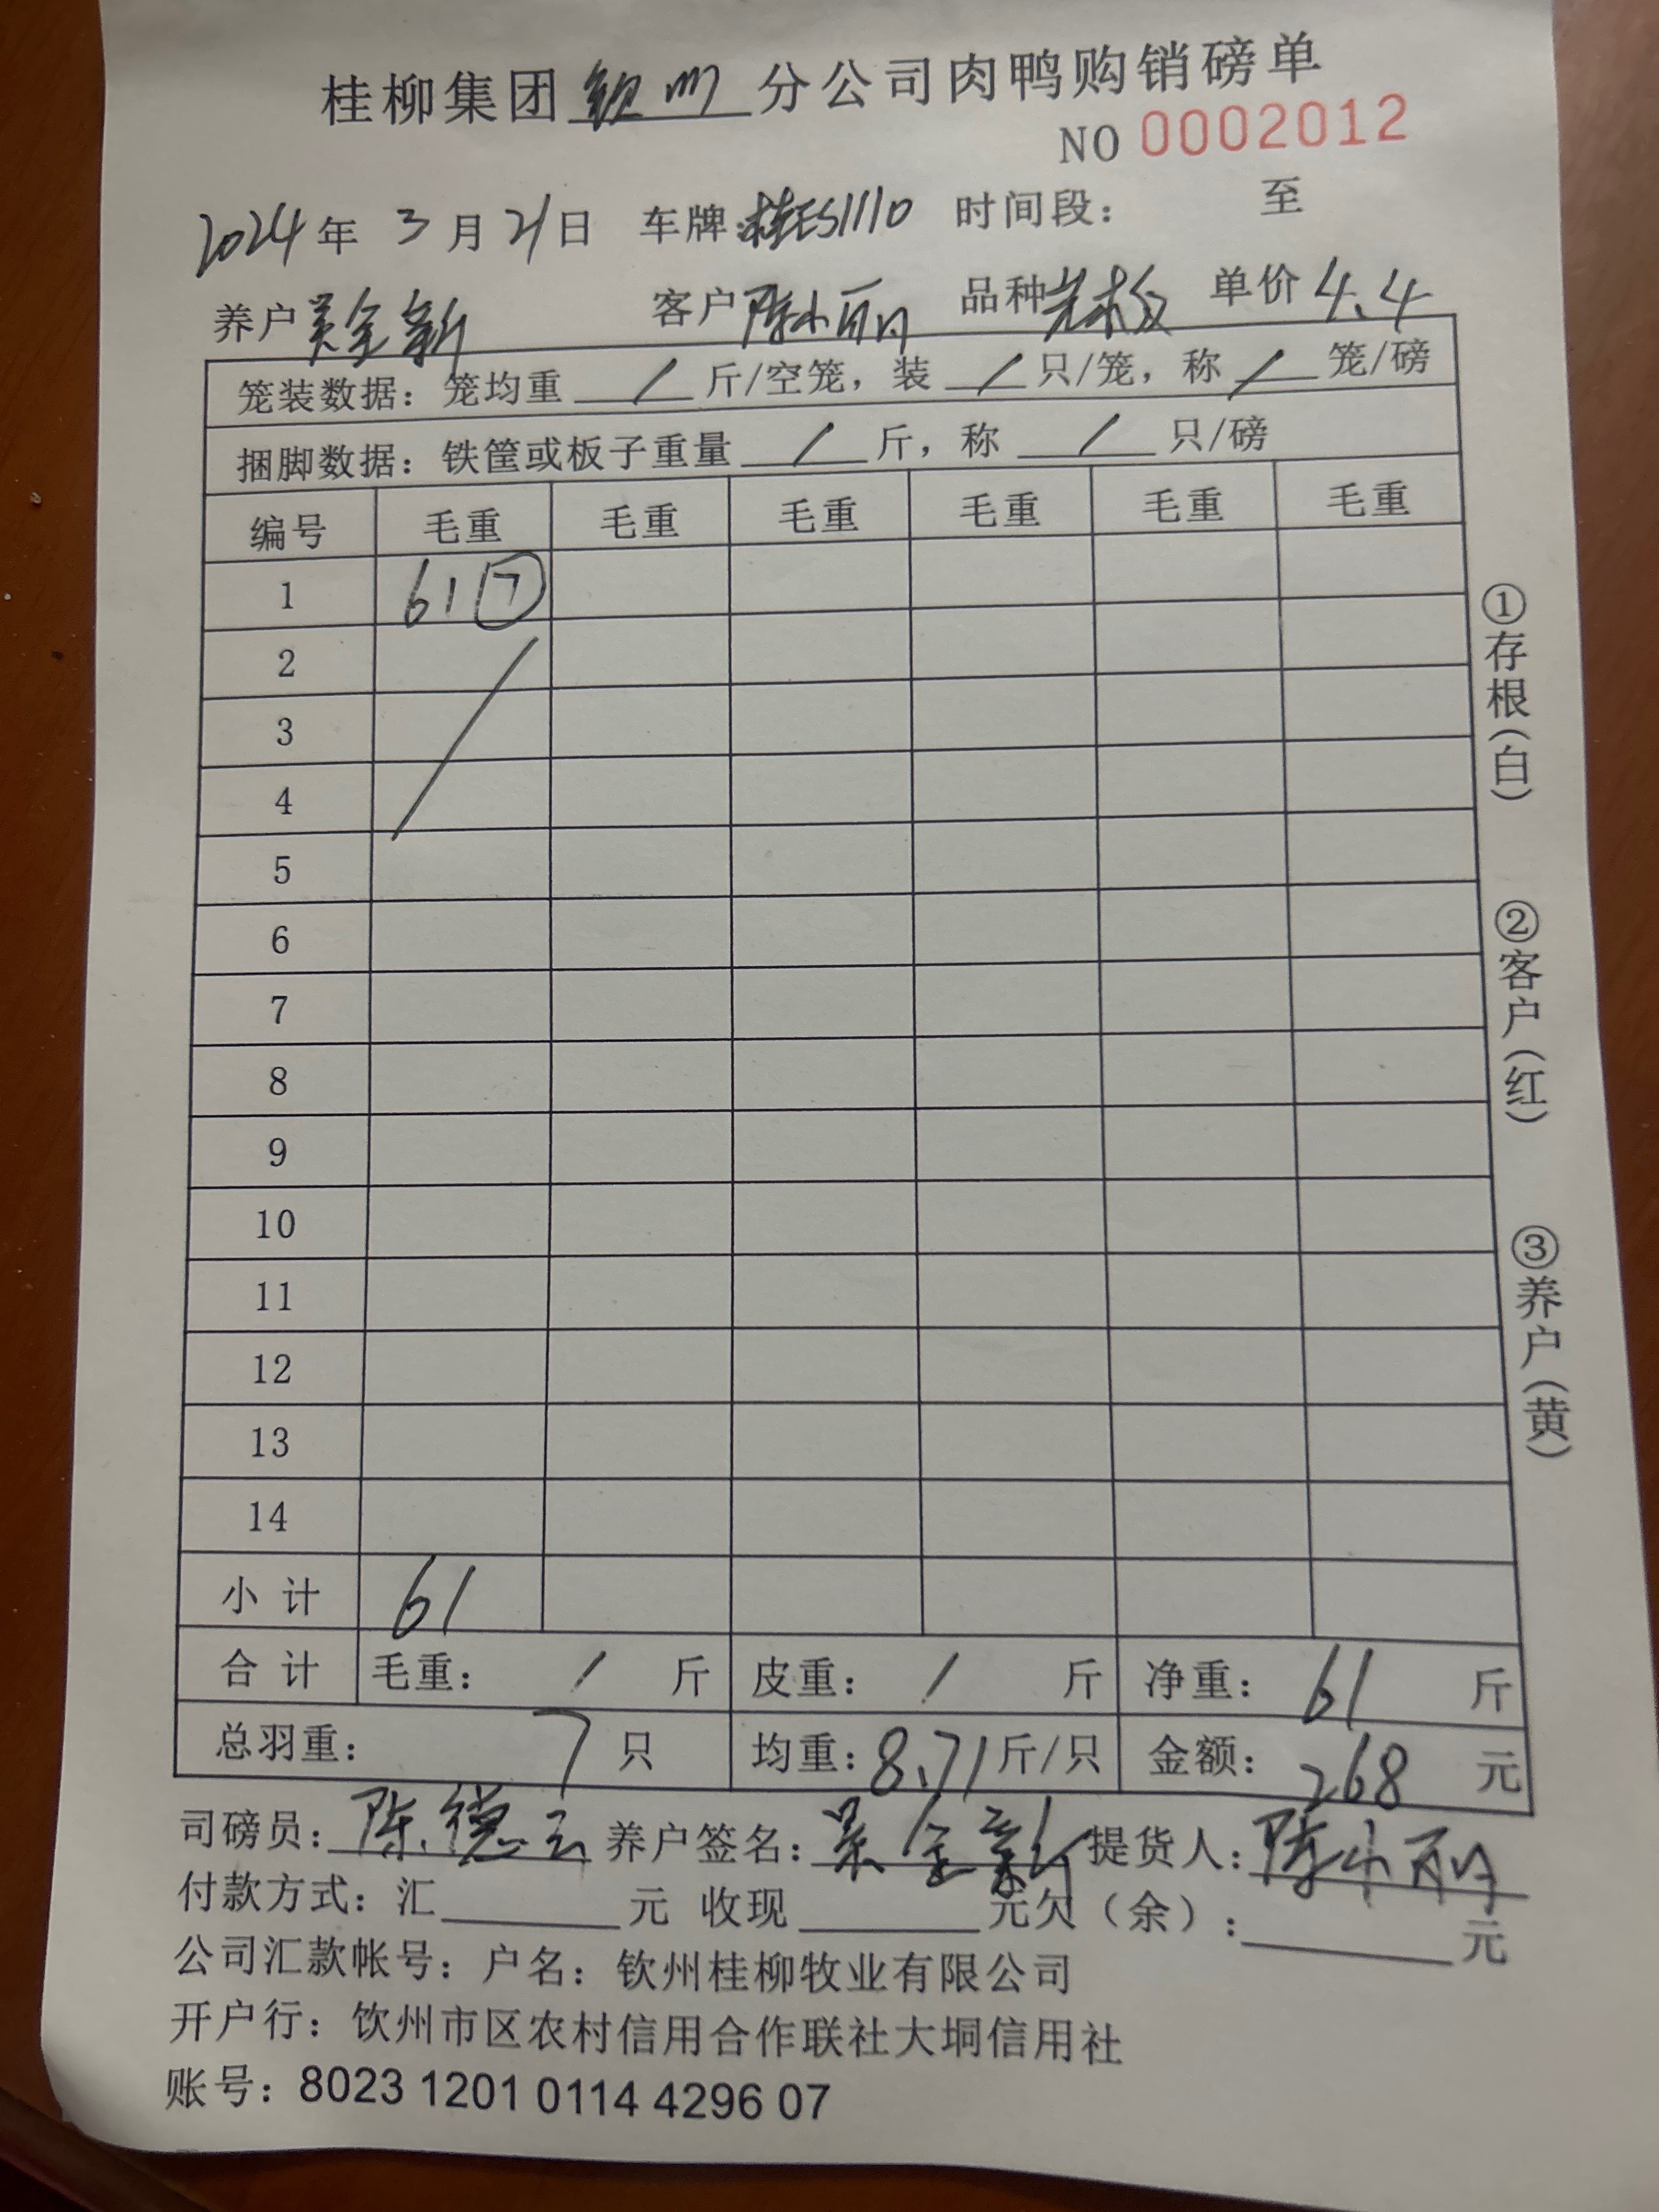 桂柳集团钦州分公司肉鸭购销磅单
NO 0002012
2024年 3月21日 车牌:桂ES1110 时间段: 至
养户 吴金新 客户 陈小丽 品种 单价 4.4
笼装数据: 笼均重 / 斤/空笼, 装 / 只/笼, 称 / 笼/磅
捆脚数据: 铁筐或板子重量 / 斤, 称 / 只/磅
编号 毛重 毛重 毛重 毛重 毛重 毛重
1 61 7
2
3
4
5
6
7
8
9
10
11
12
13
14
小计 61
合计 毛重: / 斤 皮重: / 斤 净重: 61 斤
总羽重: 7 只 均重: 8.71 斤/只 金额: 268 元
司磅员: 陈德云 养户签名: 吴金新 提货人: 陈小丽
付款方式: 汇 元 收现 元欠(余): 元
公司汇款帐号: 户名: 钦州桂柳牧业有限公司
开户行: 钦州市区农村信用合作联社大垌信用社
账号: 8023 1201 0114 4296 07
①存根(白)
②客户(红)
③养户(黄)